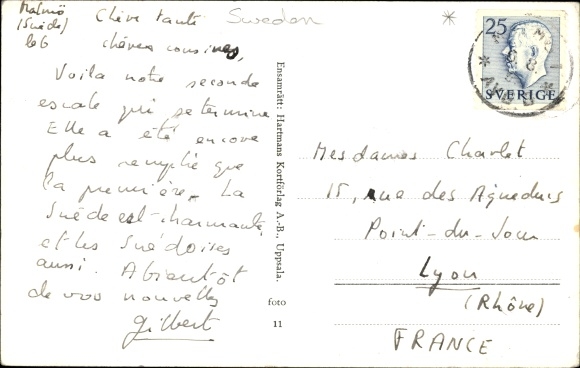 Malmö
(Suède)
le 6
Chère tante
Sweden
chères cousines,
Voila notre seconde
escale qui se termine
Elle a été encore
plus remplie que
la première. La
Suède est charmante,
et les Suédoises
aussi. A bientôt
de vos nouvelles
Gilbert
Ensamrätt: Hartmans Kortförlag A.-B., Uppsala.
foto
11
25
SVERIGE
Mesdames Charlet
15, rue des Aqueducs
Point-du-Jour
Lyon
(Rhône)
FRANCE